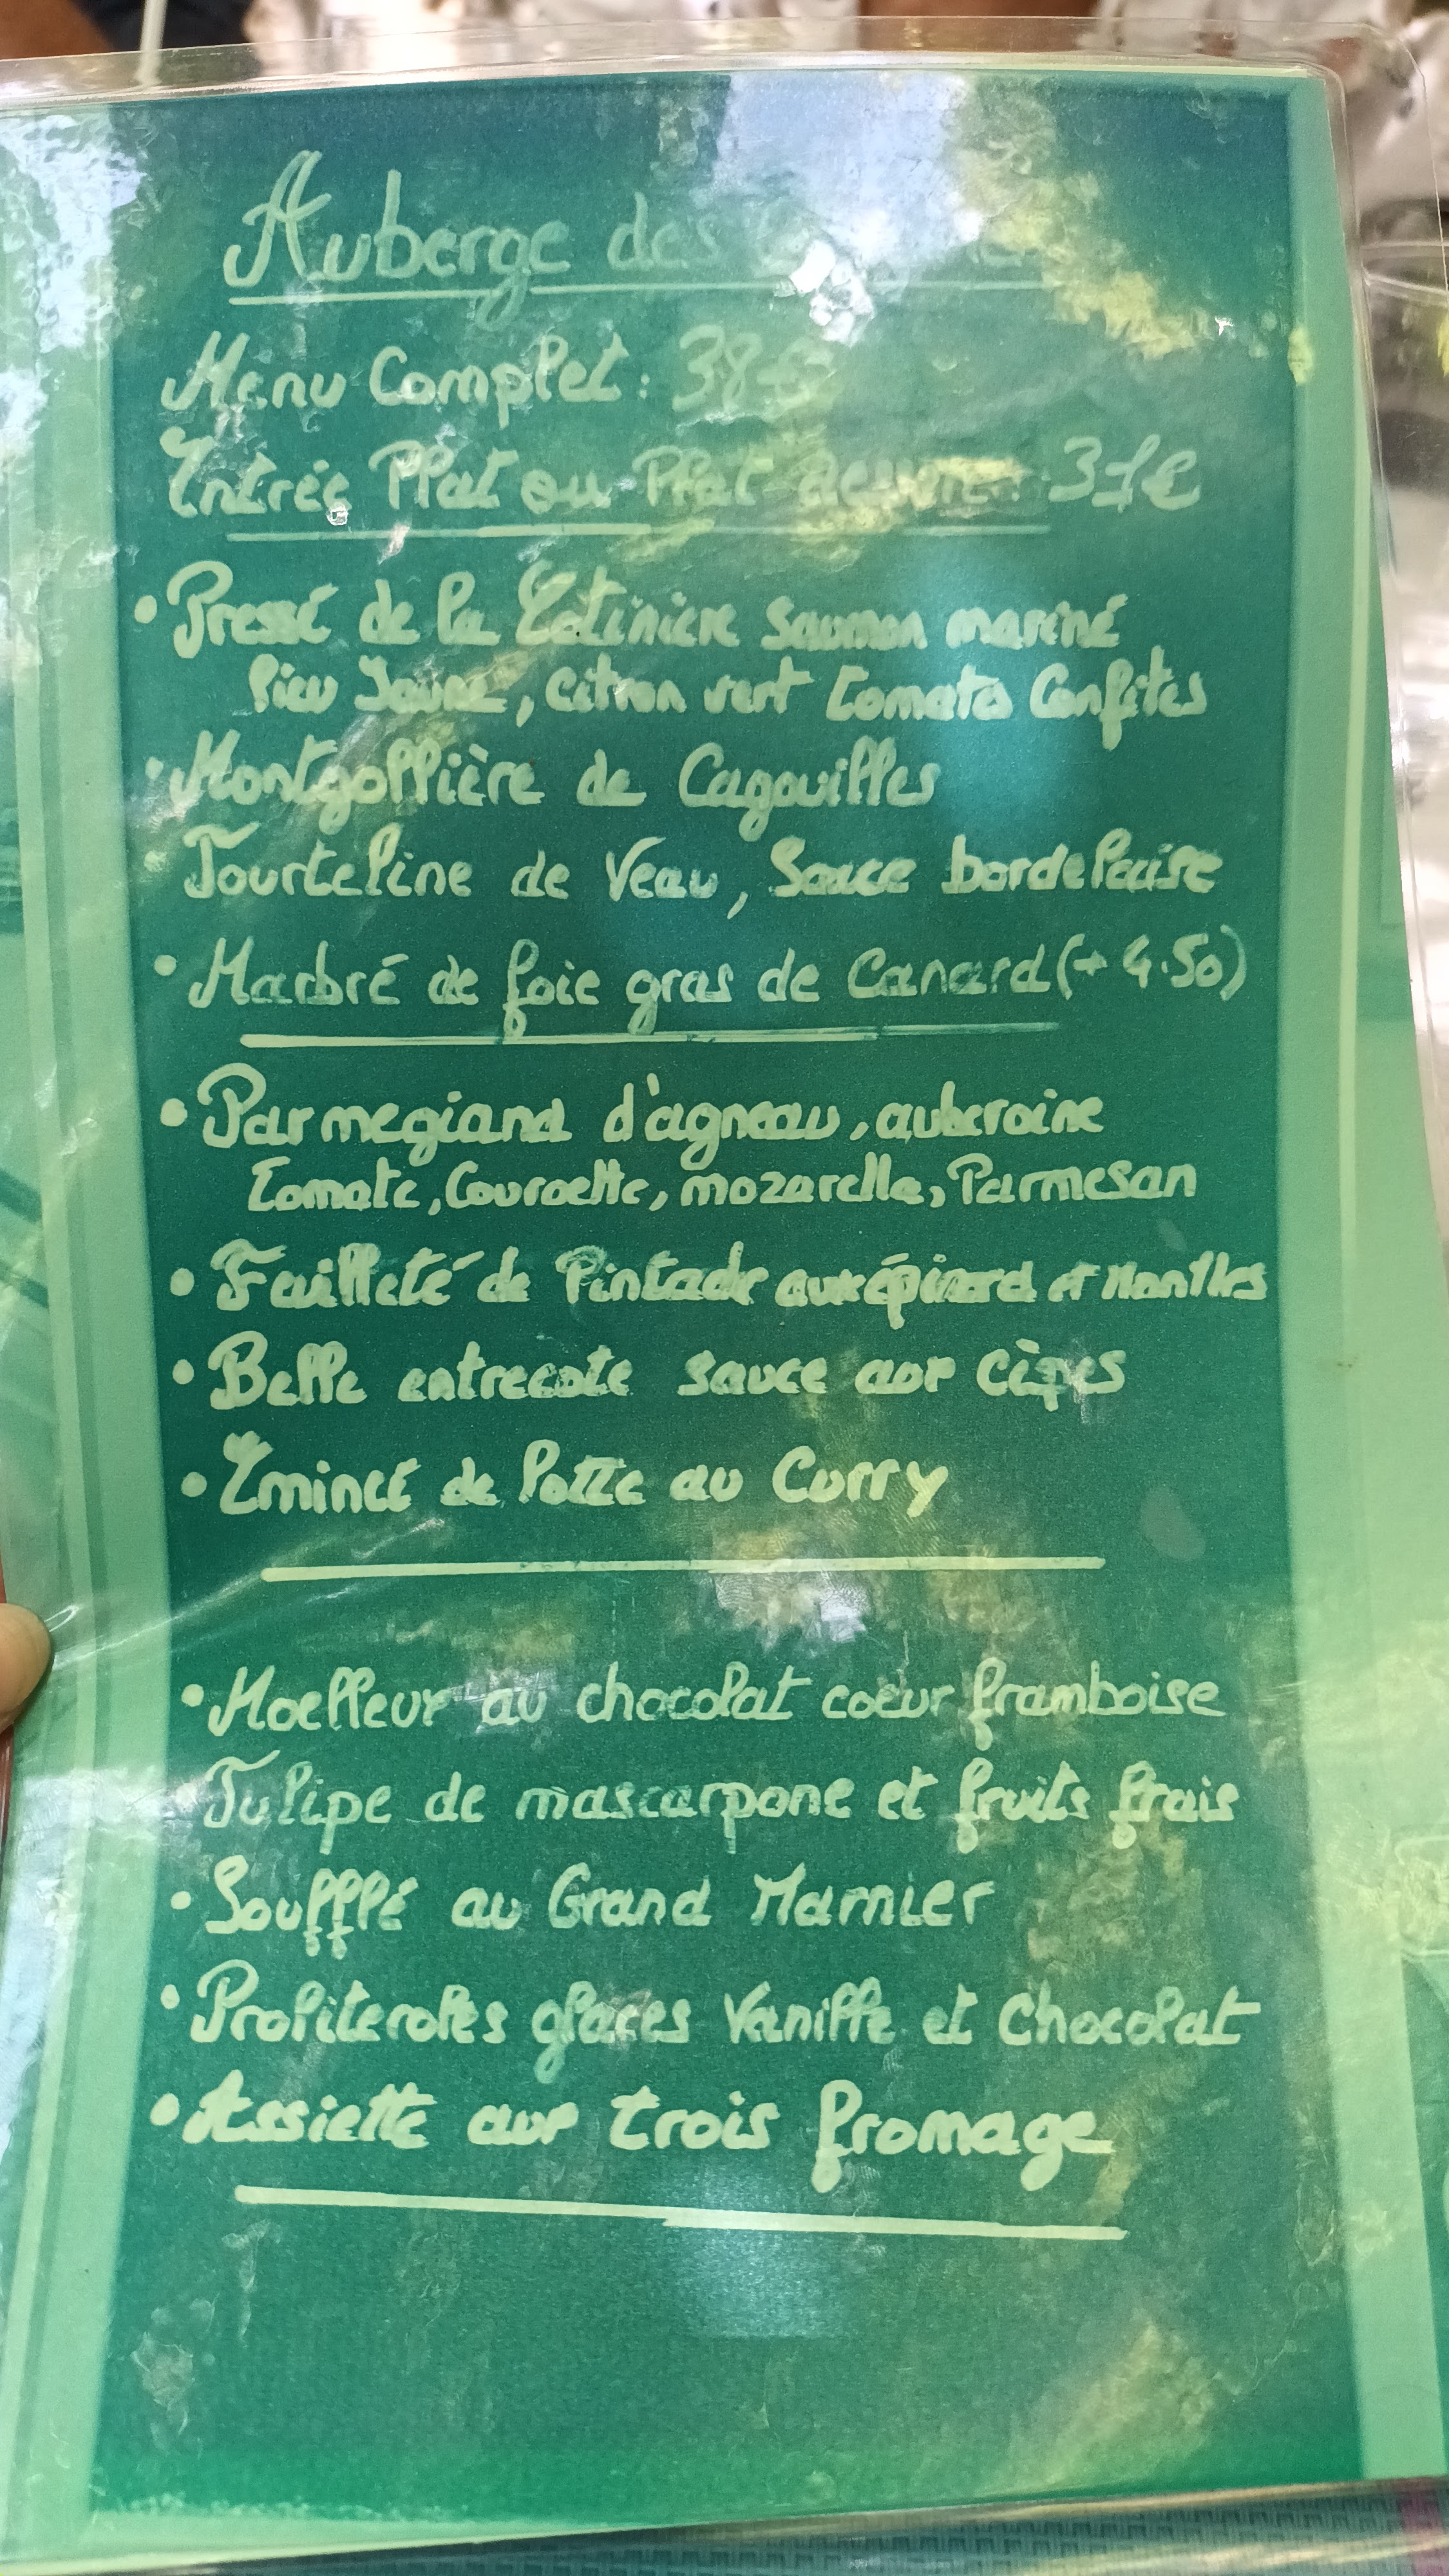 Auberge des
Menu Complet: 38€
Entrée Plat ou Plat dessert: 31€
• Pressé de la Cotinière saumon mariné
lieu Jaune, citron vert tomates Confites
• Montgollière de Cagouilles
Tourteline de Veau, Sauce bordelaise
• Marbré de foie gras de Canard (+ 4.50)
• Parmegiana d'agneau, auberoine
tomate, Couroette, mozarella, Parmesan
• Feuilleté de Pintade aux épinard et Morilles
• Belle entrecote sauce aux Cèpes
• Emincé de lotte au Curry
• Moelleur au chocolat coeur framboise
• Tulipe de mascarpone et fruits frais
• Soufflé au Grand Marnier
• Profiteroles glaces Vanille et Chocolat
• Assiette aux trois fromage